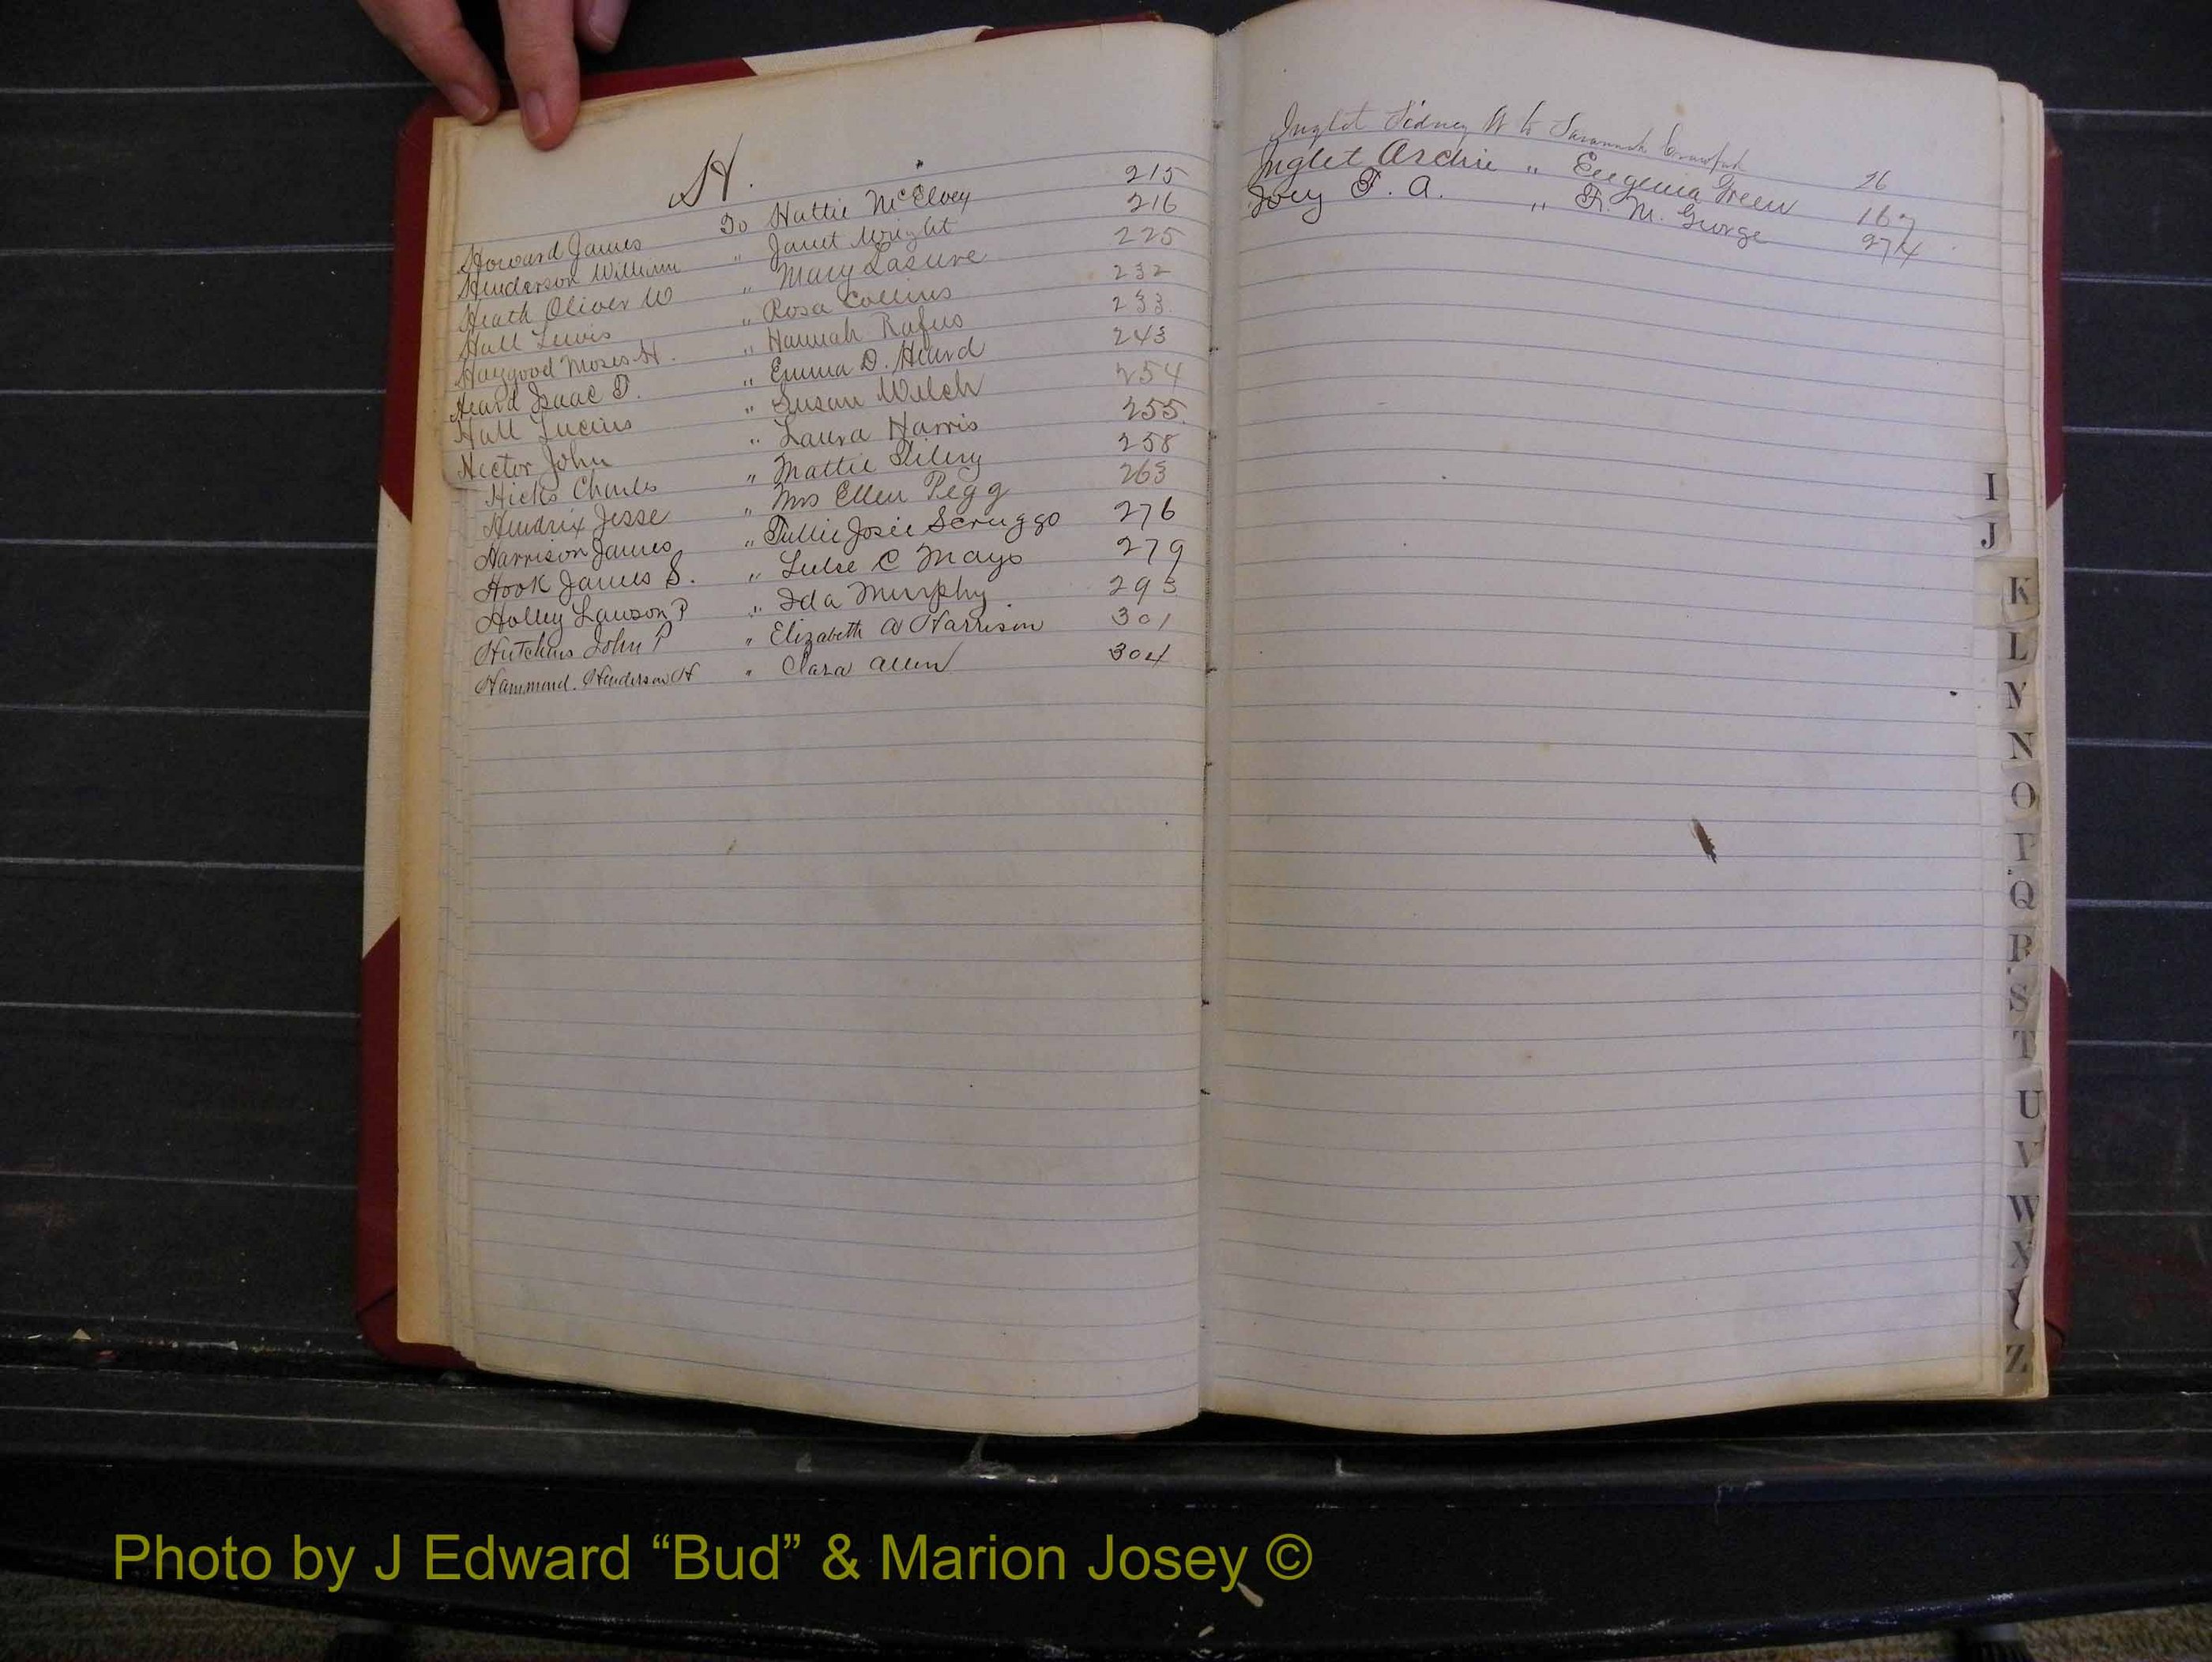 H.
Howard James To Hattie McElvey 215
Henderson William " Janet Wright 216
Heath Oliver W " Mary Lasure 225
Hall Lewis " Rosa Collins 232
Haygood Moses H. " Hannah Rufus 233
Heard Isaac T. " Emma D. Heard 243
Hall Lucius " Susan Welch 254
Hector John " Laura Harris 255
Hicks Charles " Mattie 258
Hendrix Jesse " Mrs Ellen Pegg 263
Harrison James " Josie Scruggs 276
Hook James S. " C Mays 279
Holley Lawson P " Ida Murphy 293
Hutchins John P " Elizabeth A Harrison 301
Hammond. Henderson H " Clara Allen 304
Inglet Sidney W to Savannah Crawford 26
Inglet Archie " Eugenia Green 167
Ivey F. A. " F. M. George 274
I
J
K
L
M
N
O
P
Q
R
S
T
U
V
W
X
Y
Z
Photo by J Edward “Bud” & Marion Josey ©